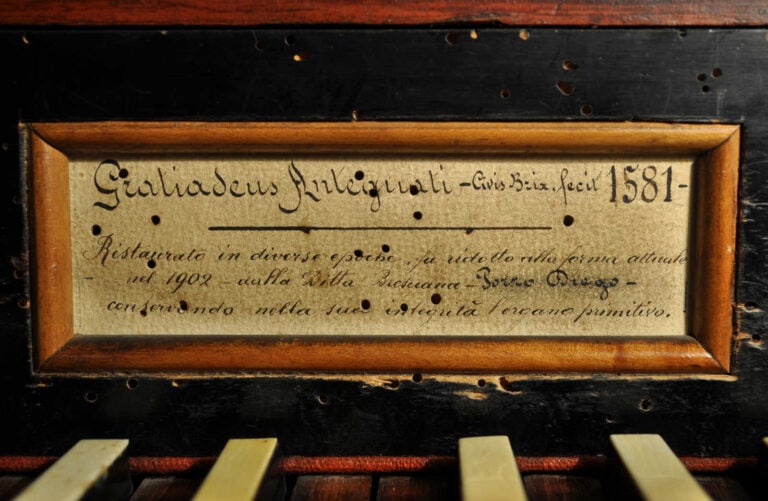 Gratiadeus Antegnati - Civis Brix. fecit 1581 -
Ristaurato in diverse epoche, fu ridotto alla forma attuale
- nel 1902 - dalla Ditta Bresciana - Porro Diego -
conservando nella sua integrità l'organo primitivo.